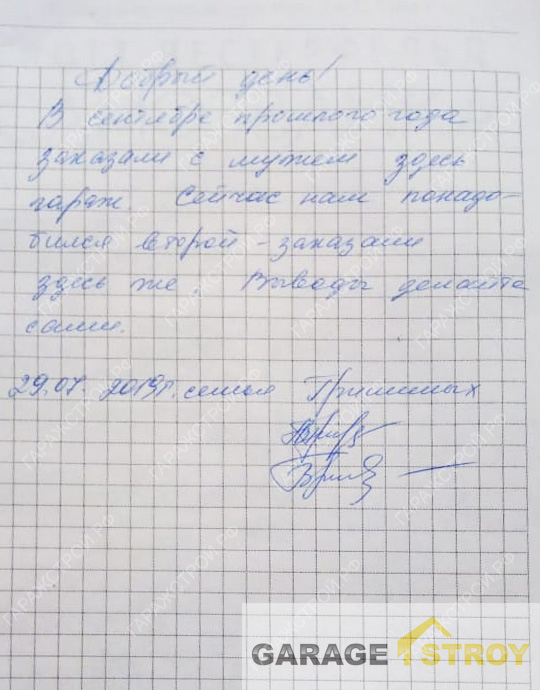 Добрый день!
В сентябре прошлого года
заказали с мужем здесь
гараж. Сейчас нам понадо-
бился второй - заказали
здесь же. Выводы делайте
сами.
29.07. 2019г. семья Гришиных
GARAGE STROY
ГАРАЖСТРОЙ.РФ